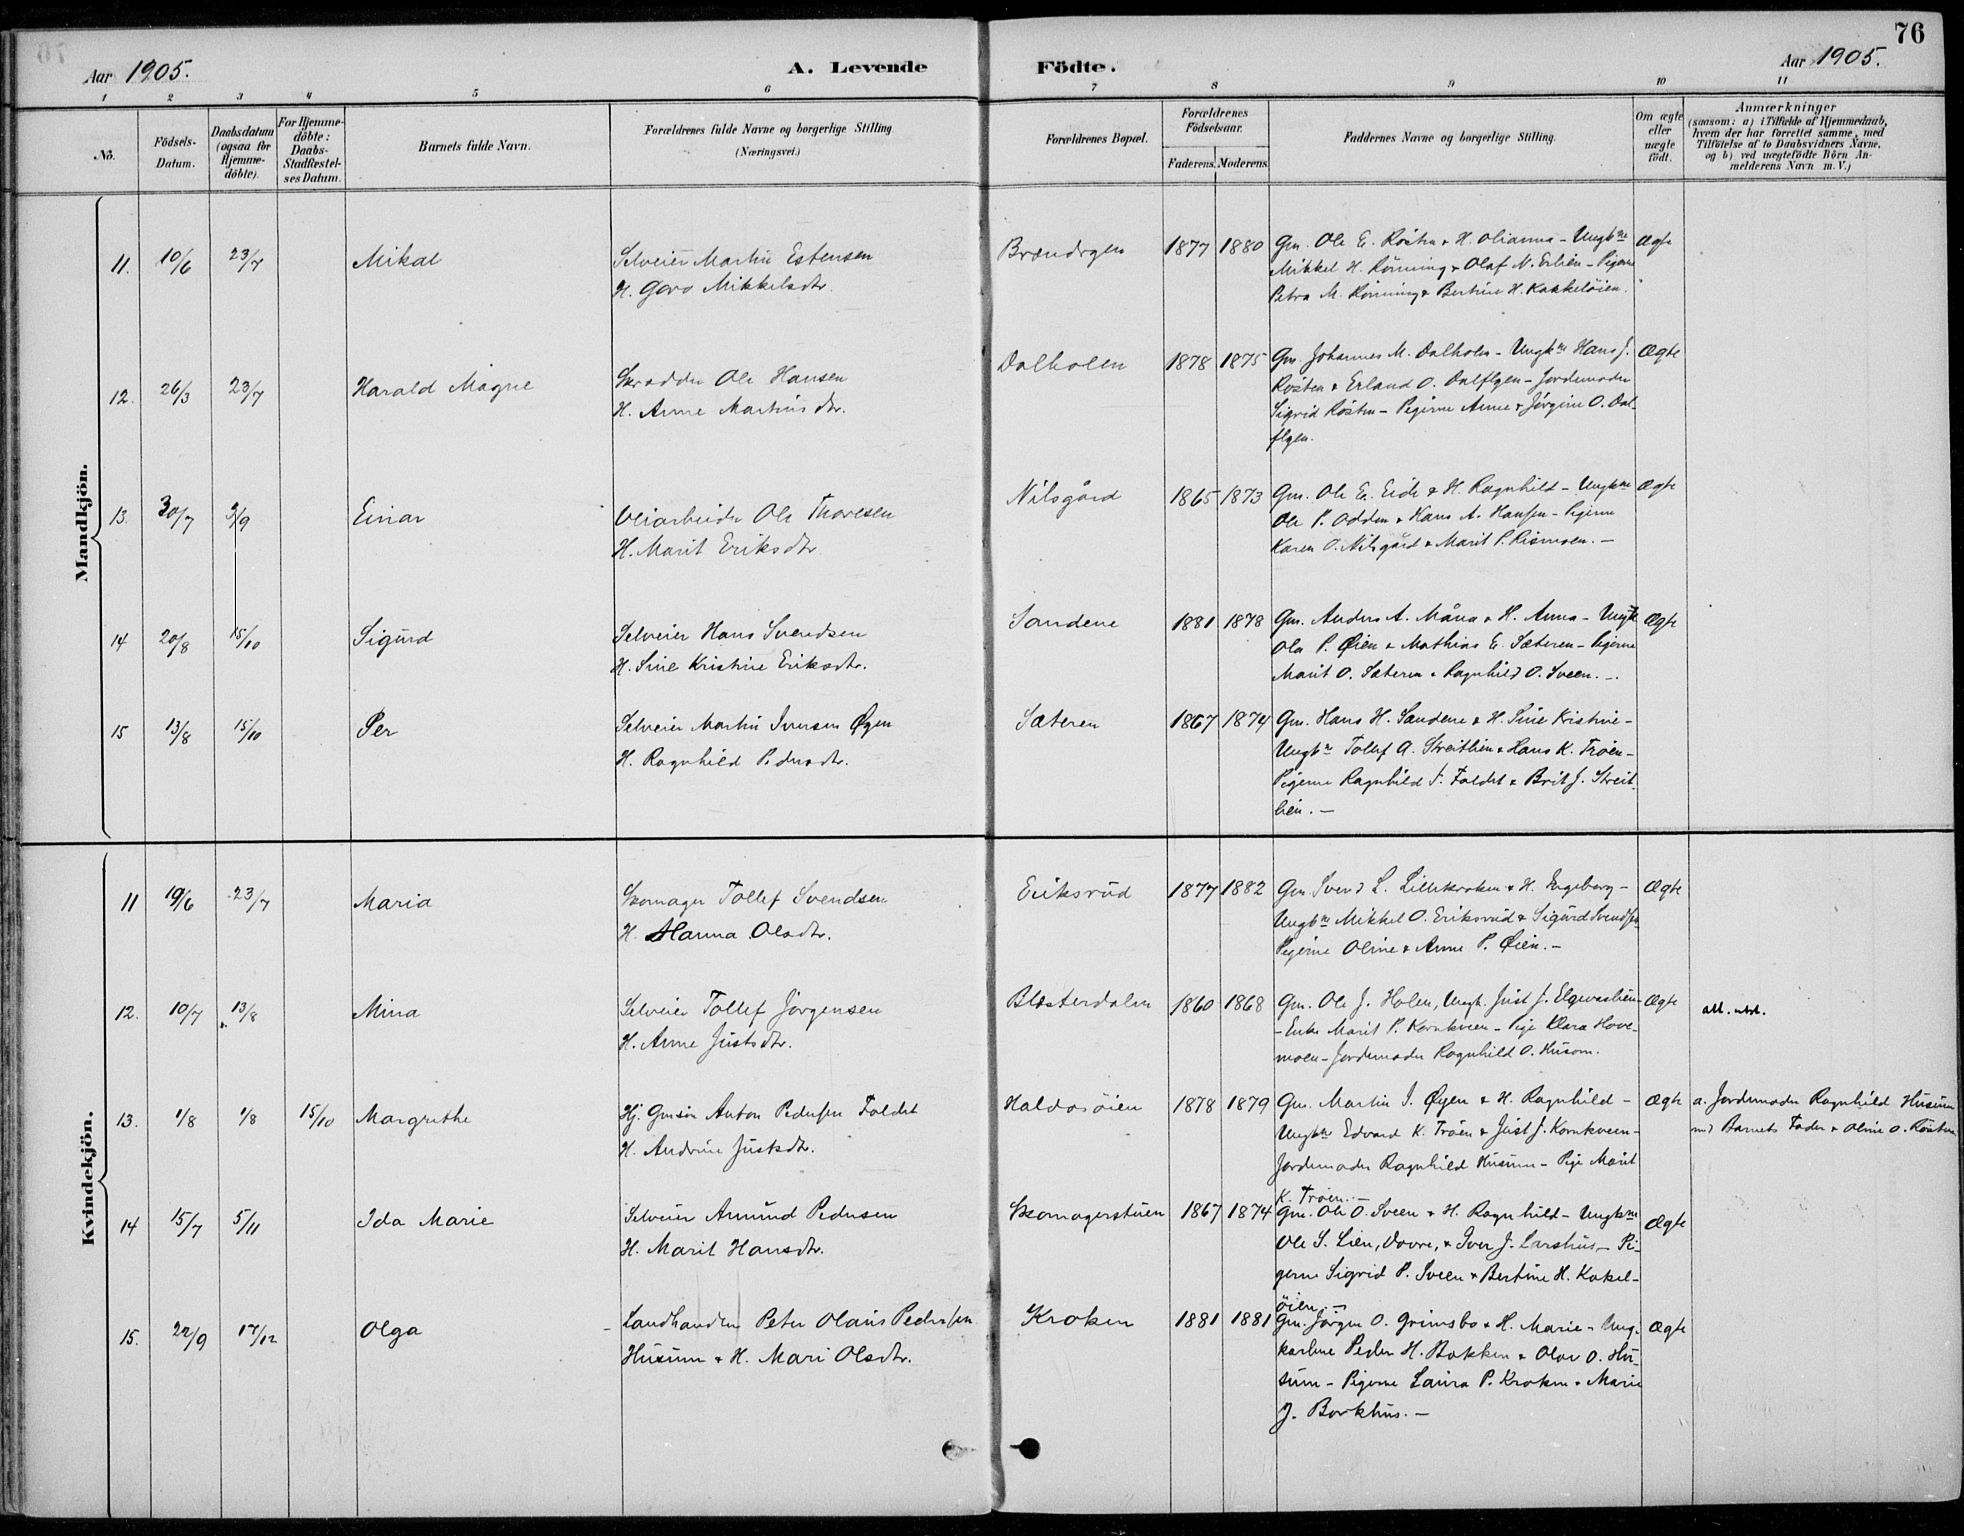 76
Aar 1905.
A. Levende Födte.
Aar 1905.
1 2 3 4 5 6 7 8 9 10 11
No.
Födsels-Datum.
Daabsdatum (ogsaa for Hjemme-döbte).
For Hjemme-döbte: Daabs-Stadfestel-ses Datum.
Barnets fulde Navn.
Forældrenes fulde Navne og borgerlige Stilling (Næringsvei.)
Forældrenes Bopæl.
Forældrenes Födselsaar.
Faderens. Moderens.
Faddernes Navne og borgerlige Stilling.
Om ægte eller uægte födt.
Anmærkninger
(saasom: a) i Tilfælde af Hjemmedaab,
hvem der har forrettet samme, med
Tilföielse af to Daabsvidners Navne,
og b) ved uægtefödte Börn An-
melderens Navn m. V.)
Mandkjön.
11. 10/6 23/7 Mikal
Selveier Martin Estensen
H. Goro Mikkelsdtr.
1877 1880
Gm. Ole E. Röstn & H. Olianna - Ungkne
Mikkel H. Rönning & Olaf N. Erlien - Pigerne
Petra M. Rönning & Bertine H. Kakkelöien.
Ægte
12. 26/3 23/7 Harald Magne
Skrædder Ole Hansen
H. Anne Martinsdtr.
Dalholen 1878 1875
Gm. Johannes M. Dalholen - Ungkne Hans J.
Röstn & Erland O. Dalflyen - Jordemoder
Sigrid Röstn - Pigerne Anne & Jörgine O. Dal-
flyen.
Ægte
13. 30/7 3/9 Einar
Veiarbeider Ole Thoresen
H. Marit Eriksdtr.
Nilsgård 1865 1873
Gm. Ole E. Eide & H. Ragnhild - Ungkne
Ole P. Odden & Hans A. Hansen - Pigerne
Karen O. Nilsgård & Marit P. Rismoen. -
Ægte
14 20/8 15/10 Sigurd
Selveier Hans Svendsen
H. Sine Kristine Eriksdtr.
Sandene 1881 1878
Gm. Anders A. Måna & H. Anna - Ungk.
Ola P. Øien & Mathias E. Sæteren - Pigerne
Marit O. Sæteren & Ragnhild O. Sveen. -
Ægte
15 13/8 15/10 Per
Selveier Martin Iversen Øyen
H. Ragnhild Pedersdtr.
Sæteren 1867 1874
Gm. Hans H. Sandene & H. Sine Kristine -
Ungkne Tollef A. Streitlien & Hans K. Tröen -
Pigerne Ragnhild J. Faldet & Brit J. Streit-
lien. -
Kvindekjön.
11 19/6 23/7 Maria
Skomager Tollef Svendsen
H. Hanna Olsdtr.
Eriksrud 1877 1882
Gm. Svend L. Lillekroken & H. Engeborg -
Ungkne Mikkel O. Eriksrud & Sigurd Svendsen
Pigerne Oline & Anne P. Øien. -
Ægte
12. 10/7 13/8 Mina
Selveier Tollef Jörgensen
H. Anne Justsdtr.
Blæsterdalen 1860 1868
Gm. Ole J. Holen, Ungk. Just J. Elgvasslien
- Enke Marit P. Kornkveen - Pige Klara Hove-
moen - Jordemoder Ragnhild O. Husom.
Ægte
att. utst.
13. 1/8 1/8 15/10 Margrethe
Hj. Gmsön Anton Pedersen Faldet
H. Andrine Justsdtr.
Haldosöien 1878 1879
Gm. Martin I. Øyen & H. Ragnhild -
Ungkne Edvard K. Tröen & Just J. Kornkveen -
Jordemoder Ragnhild Husum - Pige Marit
K. Tröen. -
Ægte
a. Jordemoder Ragnhild Husum
med Barnets Fader & Oline O. Röstn
14 15/7 5/11 Ida Marie
Selveier Amund Pedersen
H. Marit Hansdtr.
Skomagerstuen 1867 1874
Gm. Ole O. Sveen & H. Ragnhild - Ungkne
Ole S. Lien, Dovre, & Iver J. Larshus - Pi-
gerne Sigrid P. Sveen & Bertine H. Kakel-
öien. -
Ægte
15. 22/9 17/12 Olga
Landhandler Peter Olaus Pedersen
Husum & H. Mari Olsdtr.
Kroken 1881 1881
Gm. Jörgen O. Grimsbo & H. Marie - Ung-
karlene Peder H. Bakken & Olav O. Hu-
sum - Pigerne Laura P. Kroken & Marie
J. Borkhus. -
Ægte